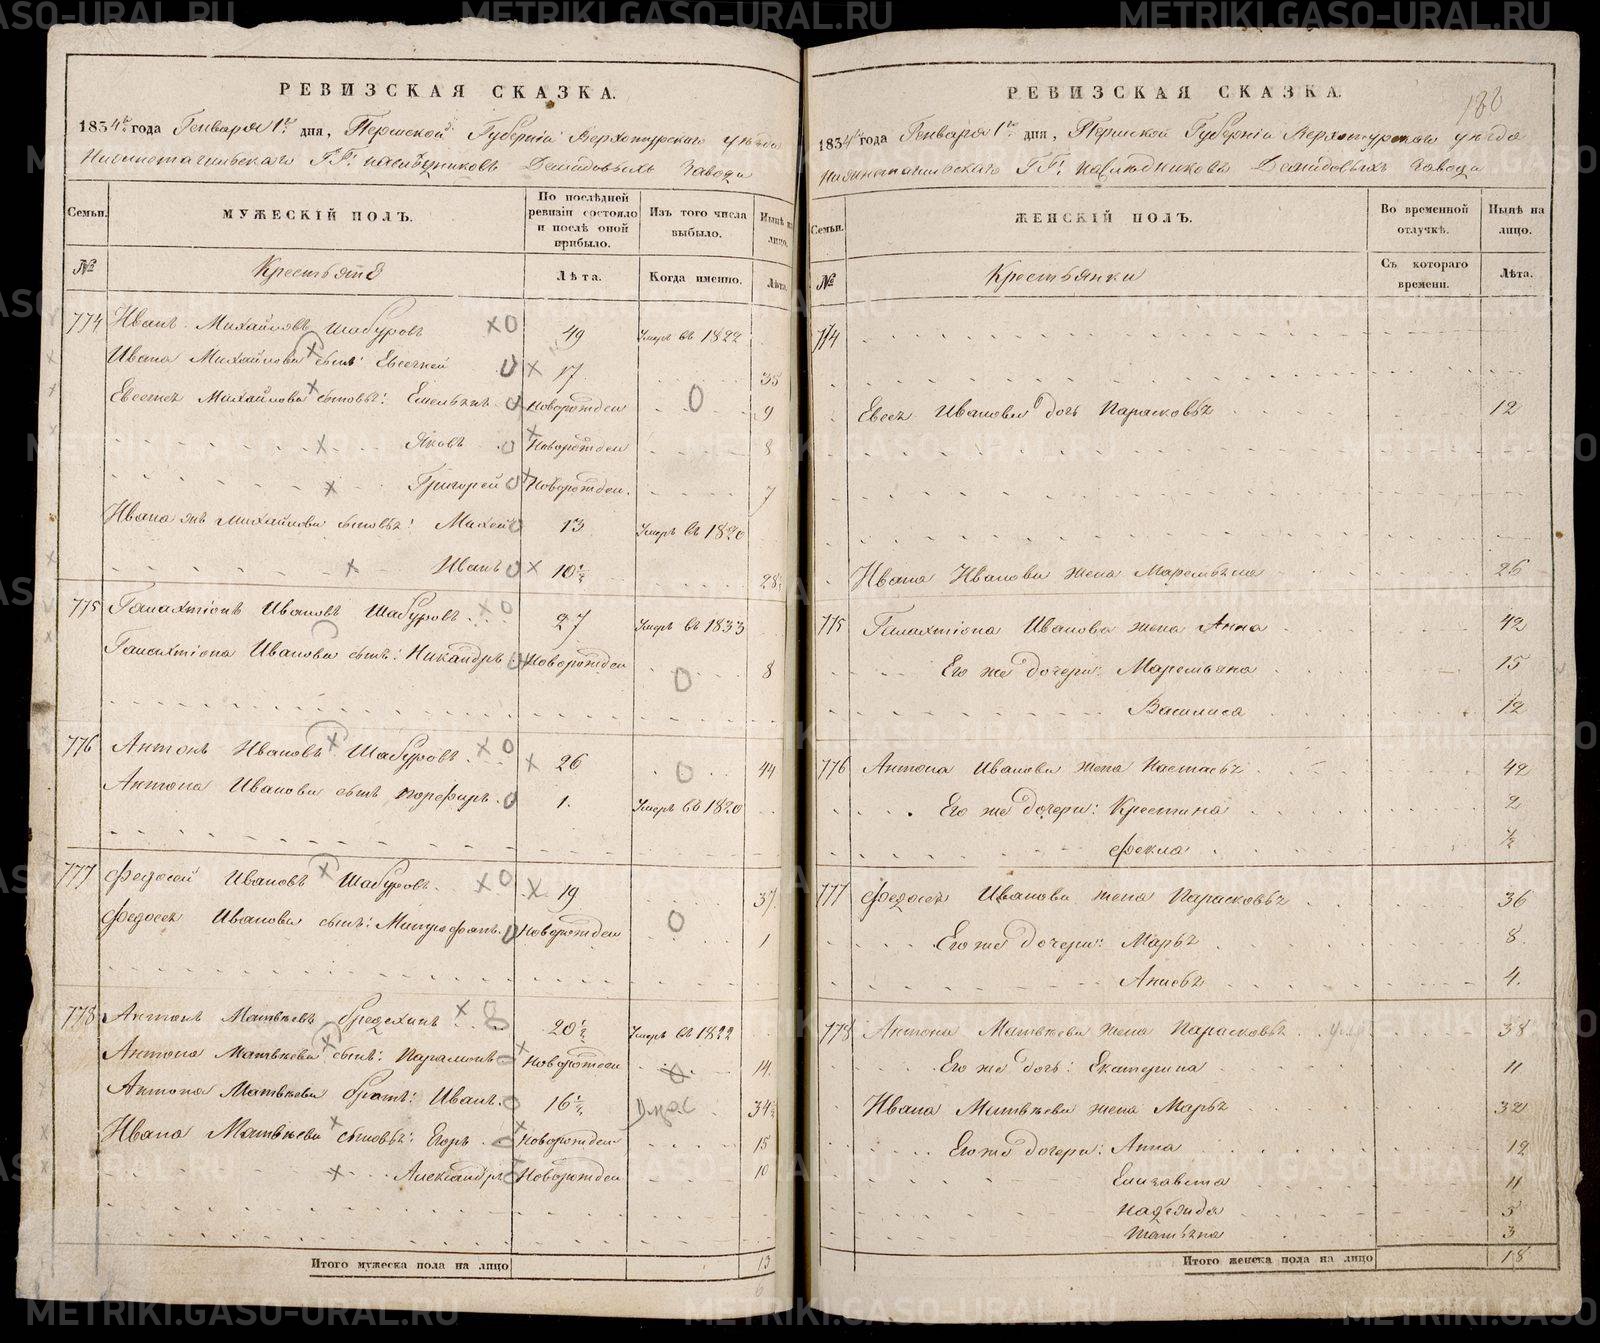 РЕВИЗСКАЯ СКАЗКА.
1834го года Генваря 1го дня, Пермской Губерніи Верхотурскаго уѣзда
Нижнотагильскаго ГГ: наслѣдниковъ Демидовыхъ Завода
Семьи.
МУЖЕСКІЙ ПОЛЪ.
По послѣдней ревизіи состояло и послѣ оной прибыло.
Изъ того числа выбыло.
Нынѣ на лицо.
№
Крестьянѣ
Лѣта.
Когда именно.
Лѣта.
774 Иванъ Михайловъ Шабуровъ 49 Умеръ въ 1822
Ивана Михайлова сынъ: Евсечей 17 35
Евсея Михайлова сыновья: Емельянъ Новорожден 9
Яковъ Новорожден 8
Григорей Новорожден. 7
Ивана жъ Михайлова сыновья: Михей 13 Умеръ въ 1820
Иванъ 10½ 28½
775 Галахтіонъ Ивановъ Шабуровъ. 27 Умеръ въ 1833
Галахтіона Иванова сынъ: Никандръ Новорожден 8
776 Антонъ Ивановъ Шабуровъ. 26 44
Антона Иванова сынъ Порфиръ. 1. Умеръ въ 1820
777 Федосей Ивановъ Шабуровъ. 19 37
Федосея Иванова сынъ: Митрофанъ. Новорожден 1
778 Антонъ Матвѣевъ 20½ Умеръ въ 1822
Антона Матвѣева сынъ: Парамонъ Новорожден 14.
Антона Матвѣева братъ: Иванъ. 16½ 34½
Ивана Матвѣева сыновья: Егоръ Новорожден 15
Александръ Новорожден 10
Итого мужеска пола на лицо 13
РЕВИЗСКАЯ СКАЗКА.
1834го года Генваря 1го дня, Пермской Губерніи Верхотурскаго уѣзда
Нижнотагильскаго ГГ: наслѣдниковъ Демидовыхъ Завода
Семьи.
ЖЕНСКІЙ ПОЛЪ.
Во временной отлучкѣ.
Нынѣ на лицо.
№
Крестьянки
Съ котораго времени.
Лѣта.
774
Евсея Иванова дочь Парасковья 12
Ивана Иванова жена Маремьяна 26
775 Галахтіона Иванова жена Анна 42
Его же дочери: Маремьяна 15
Василиса 12
776 Антона Иванова жена Настасья 42
Его же дочери: Крестина 2
Фекла ½
777 Федосея Иванова жена Парасковья 36
Его же дочери: Марья 8
Анисья 4.
778 Антона Матвѣева жена Парасковья 38
Его же дочь: Екатерина 11
Ивана Матвѣева жена Марья 32
Его же дочери: Анна 12
Елизавета 11
Надежда 5
Татьяна 3
Итого женска пола на лицо 18
METRIKI.GASO-URAL.RU